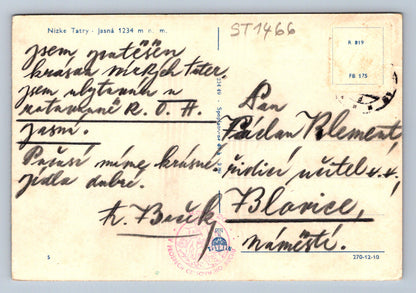 Nízke Tatry - Jasná 1234 m n. m.
ST1466
R 819
FB 175
jsem potěšen
krásou Nízkých Tater.
jsem ubytován v
zotavovně R. O. H.
Jasná.
Počasí máme krásné,
jídla dobré.
K. Bouk
Pan
Václav Klement,
řídící učitel v. v.,
Blovice,
náměstí.
5
270-12-10